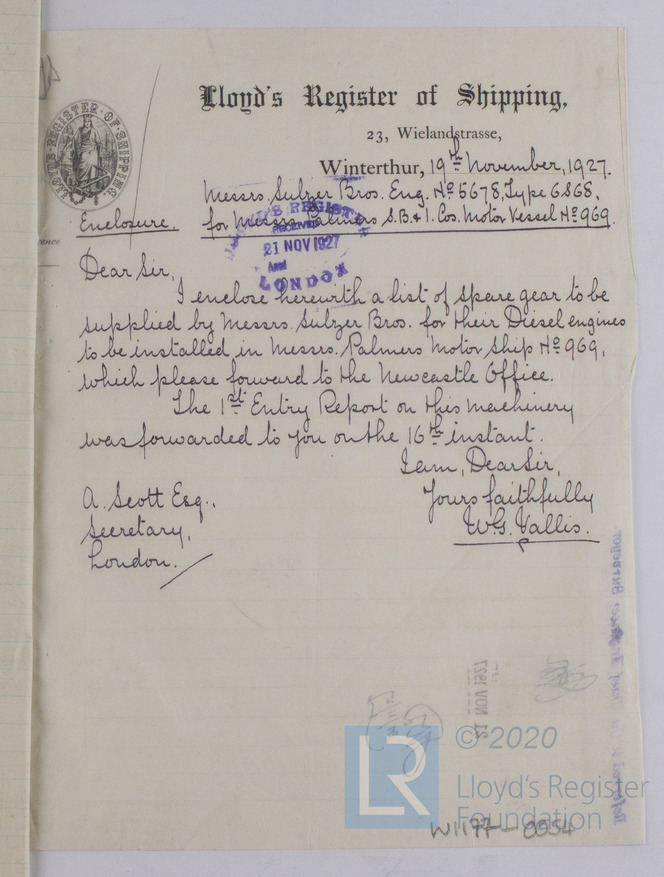 LLOYD'S REGISTER OF SHIPPING.
Lloyd's Register of Shipping,
23, Wielandstrasse,
Winterthur, 19th November, 1927.
Messrs. Sulzer Bros. Eng. No 5678, Type 6S68,
Enclosure. for Messrs. Palmers S.B. & I. Cos. Motor Vessel No 969.
LLOYD'S REGISTER
RECEIVED
21 NOV 1927
LONDON
Dear Sir,
I enclose herewith a list of spare gear to be
supplied by Messrs. Sulzer Bros. for their Diesel engines
to be installed in Messrs. Palmers Motor Ship No 969,
which please forward to the Newcastle Office.
The 1st Entry Report on this machinery
was forwarded to you on the 16th instant.
I am, Dear Sir,
Yours faithfully
W.G. Vallis.
A. Scott Esq.,
Secretary,
London.
21 NOV 1927
LR
© 2020
Lloyd's Register
Foundation
W1197-0054